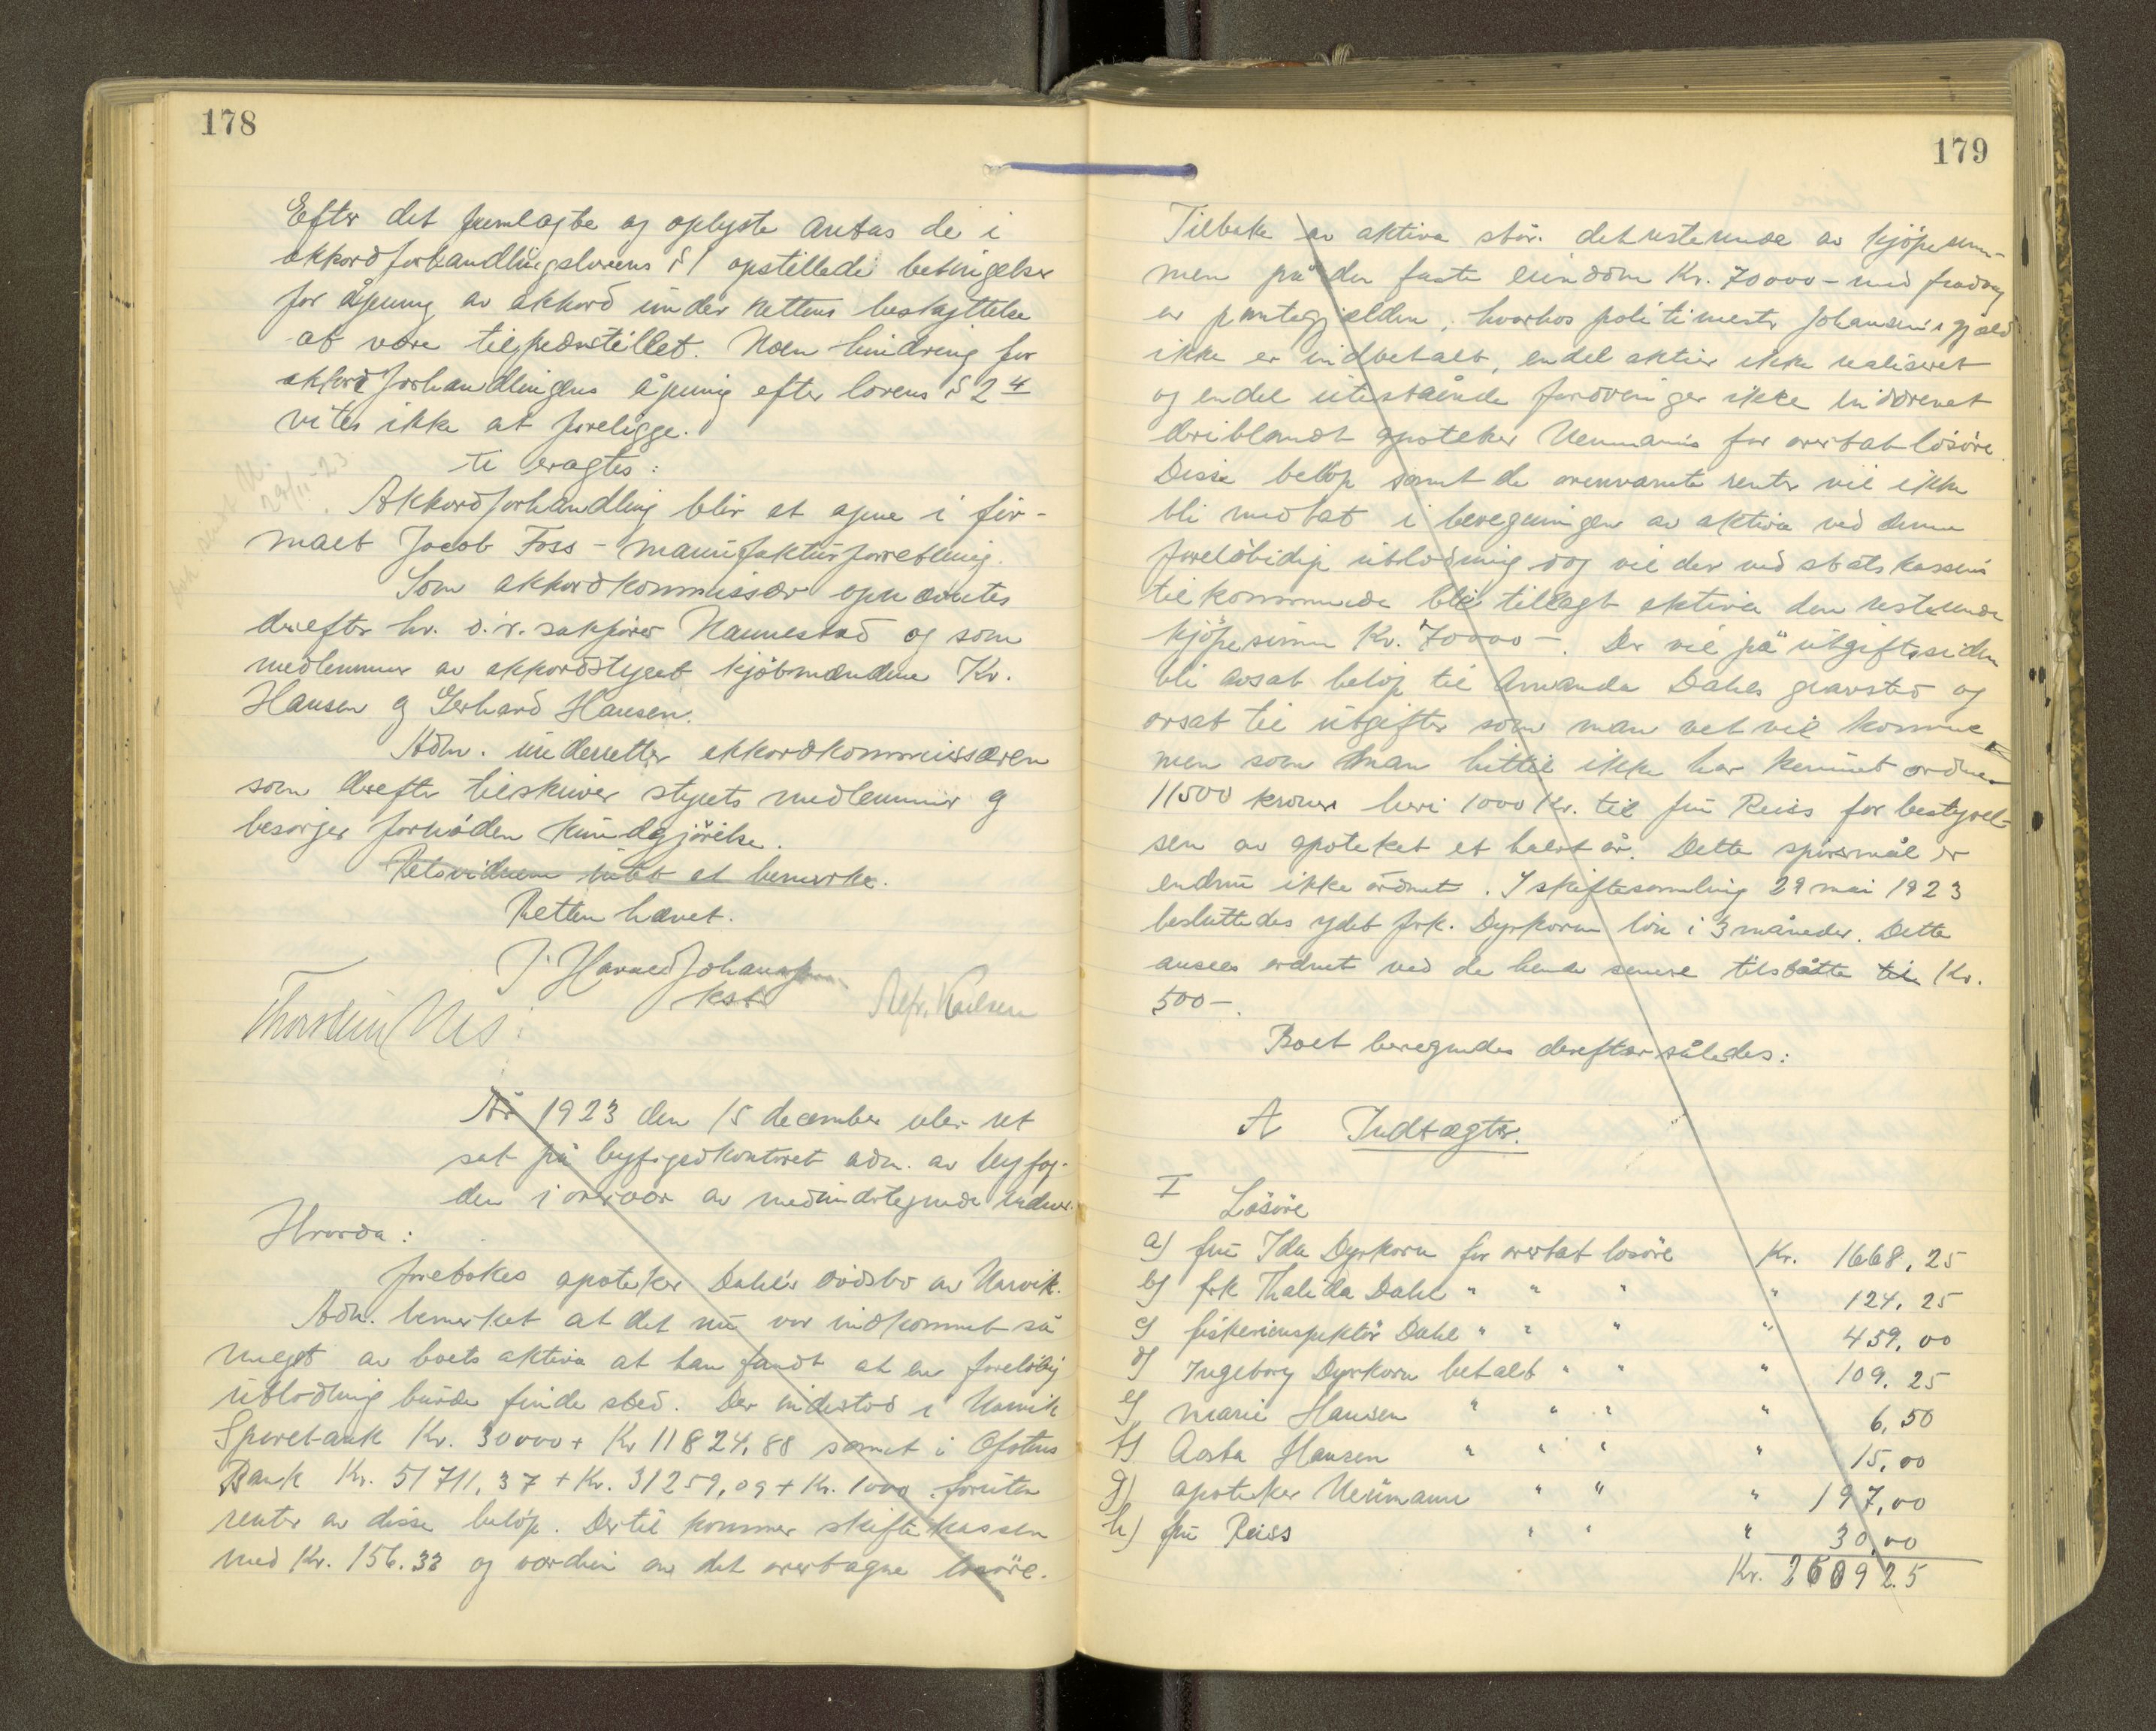 178
Efter det fremlagte og oplyste antas de i
akkordforhandlingslovens § 1 opstillede betingelser
for åpning av akkord under rettens beskyttelse
at være tilfredsstillet. Noen hindring for
akkordforhandlingens åpning efter lovens § 2 4
vites ikke at foreligge.
ti eragtes:
Akkordforhandling blir at åpne i fir-
maet Jacob Foss - manufakturforretning.
Som akkordkommissær opnævntes
derefter hr. o.r. sakfører Nannestad og som
medlemmer av akkordstyret kjøbmændene Kr.
Hansen og Gerhard Hansen.
Adm. underretter akkordkommissæren
som derefter tilskriver styrets medlemmer og
besørger fornöden kundgjörelse.
Retsvidnene intet at bemerke.
Retten hævet.
J. Havned Johannsen
kst
Thorstein Nes
Alfr. Karlsen
År 1923 den 15 december blev ret
sat på byfogedkontoret adm. av byfog-
den i overvær av medundertegnede vidner.
Hvorda:
foretokes apoteker Dahls dödsbo av Narvik.
Adm. bemerket at det nu var indkommet så
meget av boets aktiva at han fandt at en foreløbig
utlodning burde finde sted. Der indestod i Narvik
Sparebank Kr. 30000 + Kr 11824,88 samt i Ofotens
Bank Kr. 51711,37 + Kr. 31259,09 + Kr. 1000 foruten
renter av disse beløp. Dertil kommer skiftekassen
med Kr. 156.33 og værdien av det overtagne løsöre.
179
Tilbake av aktiva står det resterende av kjöpesum-
men på den faste eiendom Kr. 70000 - med fradrag
av pantegjælden, hvorhos politimester Johansens gjæld
ikke er indbetalt, endel aktier ikke realiseret
og endel utestående fordringer ikke inddrevet
deriblandt apoteker Neumanns for overtat løsöre.
Disse beløp samt de ovennævnte renter vil ikke
bli medtat i beregningen av aktiva ved denne
foreløbige utlodning dog vil der ved statskassens
tilkommende bli tillagt aktiva den resterende
kjöpesum Kr. 70000 -. Der vil på utgiftssiden
bli avsat beløp til Amanda Dahls gravsted og
avsat til utgifter som man vet vil komme
men som man hittil ikke har kunnet ordne
11500 kroner heri 1000 Kr. til fru Reiss for bestyrel-
sen av apoteket et halvt år. Dette spörsmål er
endnu ikke ordnet. I skiftesamling 29 mai 1923
besluttedes ydet frk. Dyrkorn lön i 3 måneder. Dette
ansees ordnet ved de hende senere tilståtte til Kr.
500 -.
Boet beregnedes derefter således:
A Indtægter.
I
Løsöre
a) fru Ida Dyrkorn for overtat losöre Kr. 1668,25
b) frk Thalida Dahl " " " " 124,25
c) fiskeriinspektör Dahl " " " " 459,00
d) Ingeborg Dyrkorn betalt " " " 109,25
e) Marie Hansen " " " " 6,50
f) Aasta Hansen " " " " 15,00
g) apoteker Neumann " " " 197,00
h) fru Reiss " " " 30,00
Kr. 260925